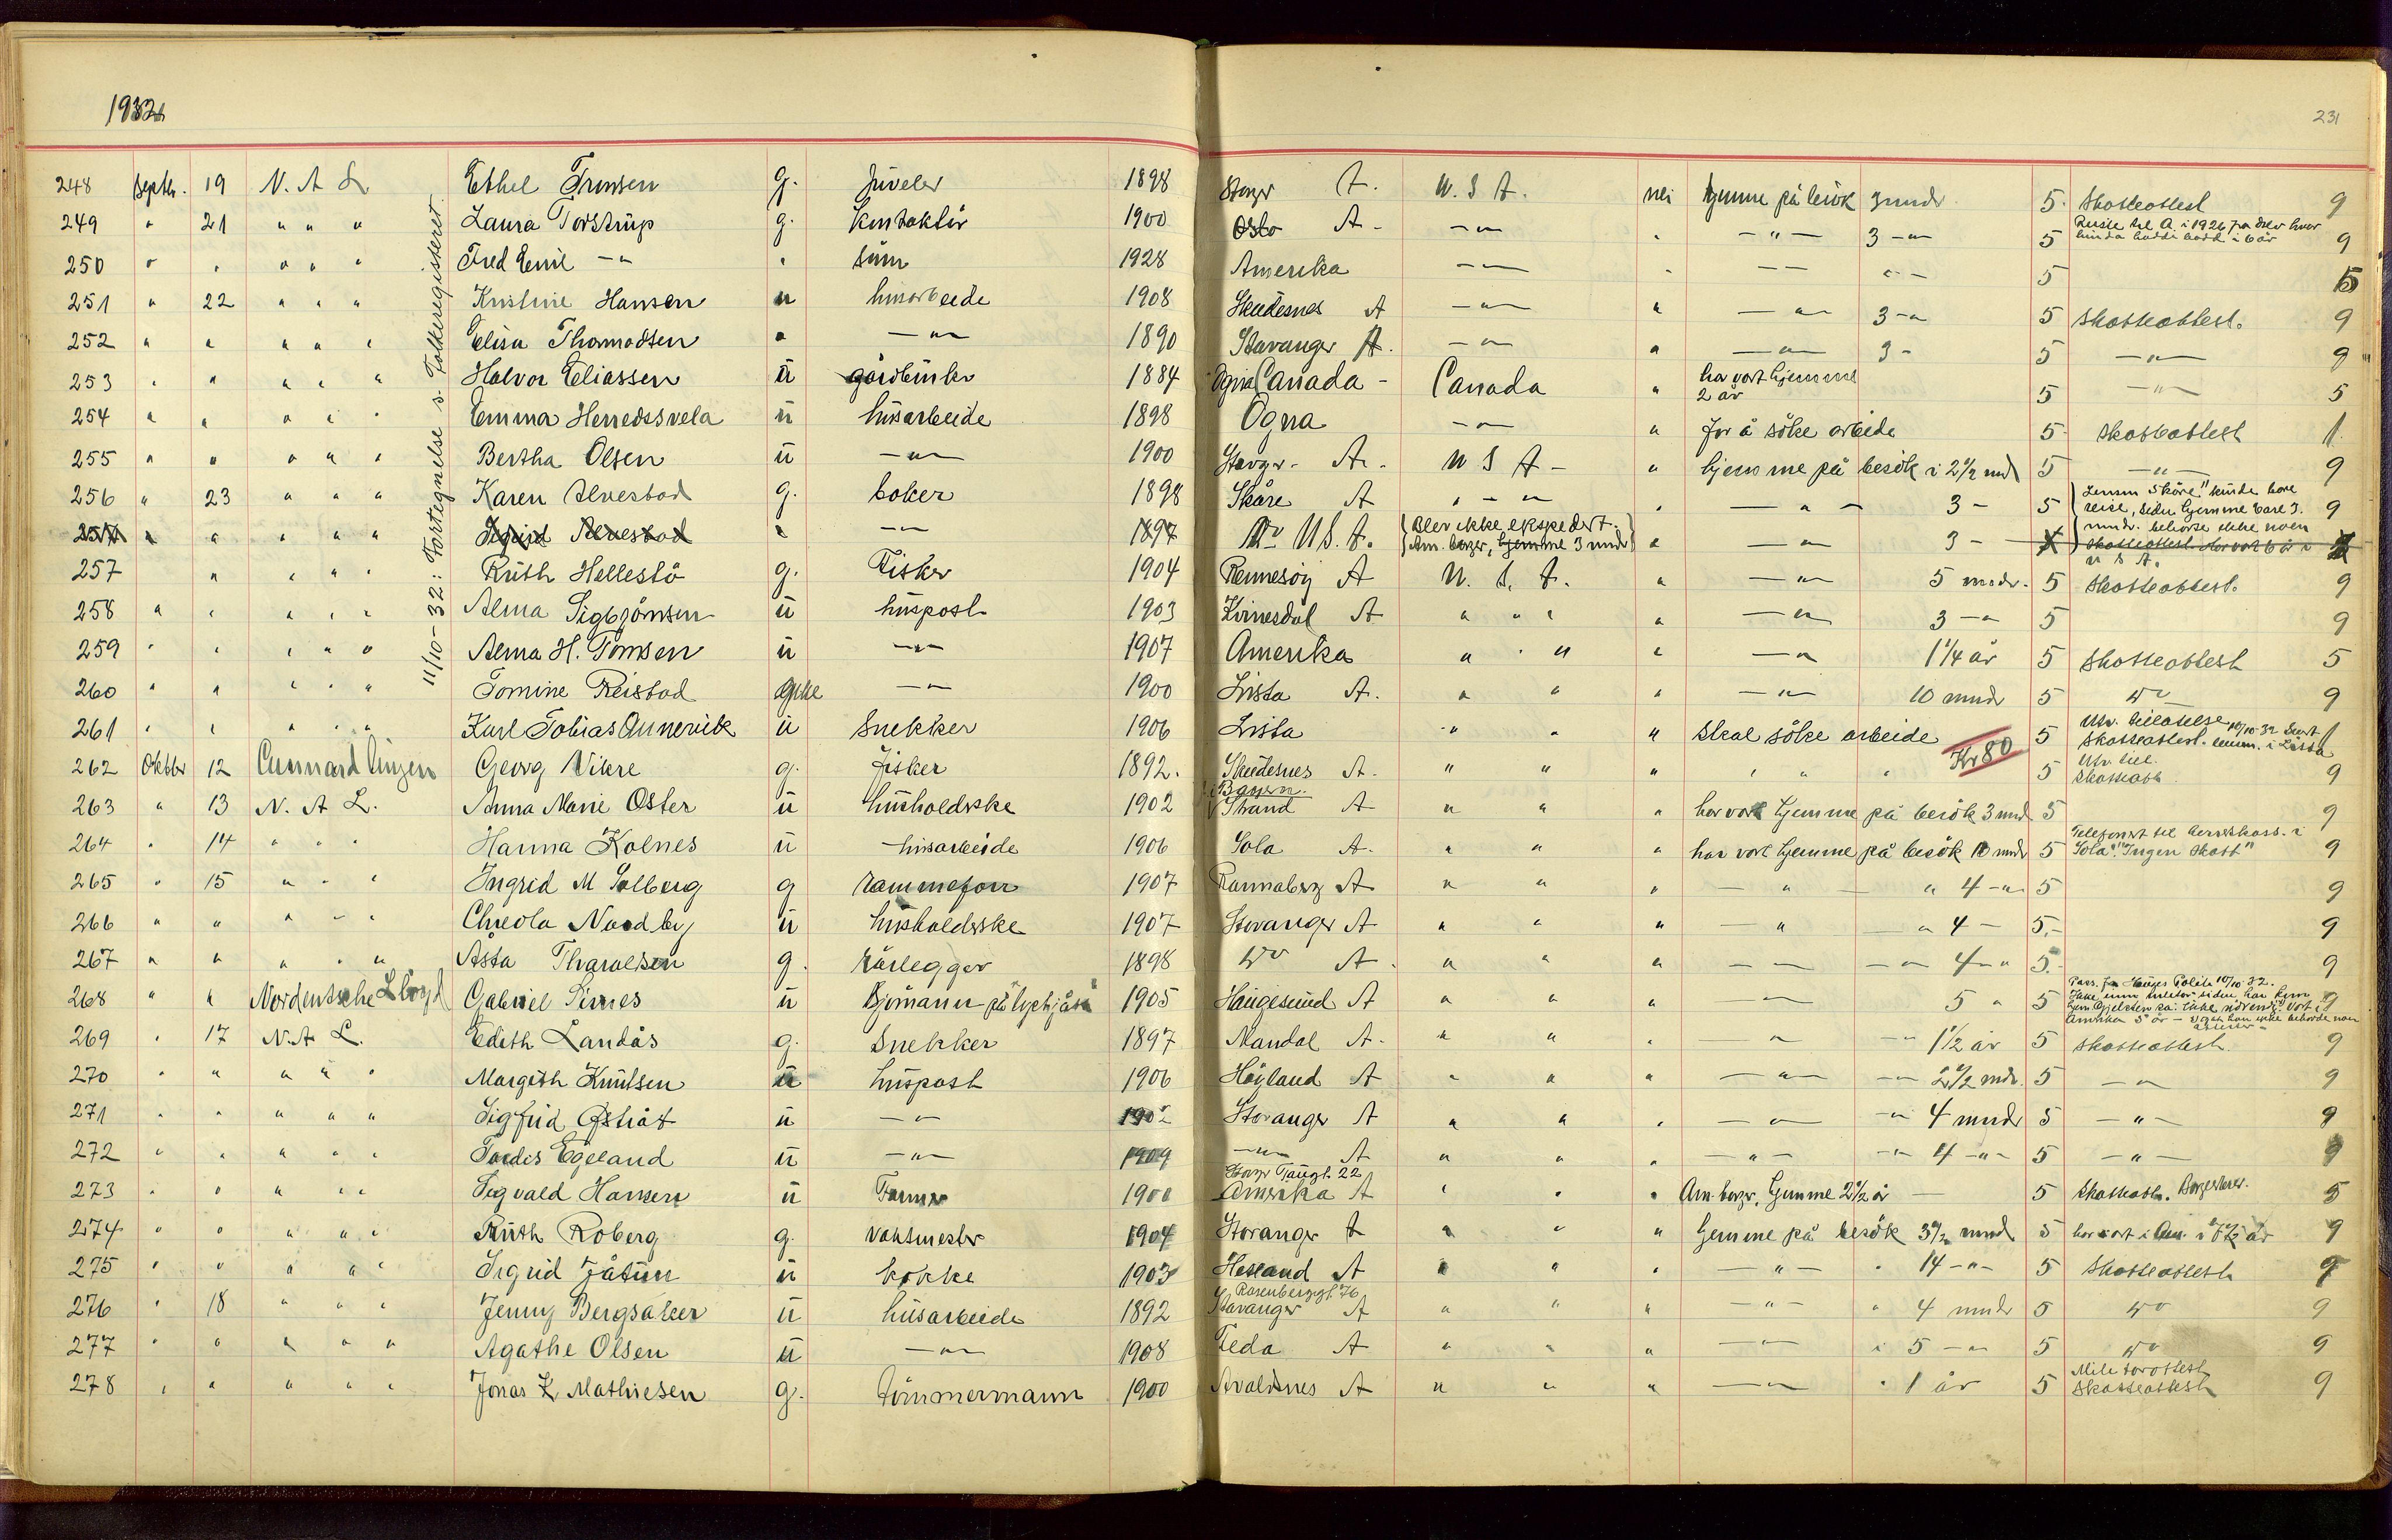 1932
231
248 Septb. 19 N. A L Ethel Tronsen g. juveler 1898 Stavgr A. U. S A. nei hjemme på besök 3 mndr 5. Skatteattest 9
249 " 21 " " " Laura Torstrup g. kontoktör 1900 Oslo A - — " — " — " — 3 — " — 5 Reiste til A. i 1926 fra Oslo hvor hun da hadde bodd i 6 år 9
250 " " " " " Fred Emil — " " sönn 1928 Amerika — " — " — — " — 5 5
251 " 22 " " " Kristine Hansen u husarbeide 1908 Skudesnes A — " — " — " — 3 — " 5 Skatteattest. 9
252 " " " " " Elisa Thomadsen " — " — 1890 Stavanger A. — " — " — " — 3 - 5 — " — 9
253 " " " " " Halvor Eliassen u gårdbruker 1884 Ogna Canada - Canada " har vört hjemme 2 år 5 — " — 5
254 " " " " " Emma Herredsvela u husarbeide 1898 Ogna — " — " for å söke arbeide 5 Skatteattest 1
255 " " " " " Bertha Olsen u — " — 1900 Stavgr. A. U S A - " hjemme på besök i 2 1/2 mnd 5 — " — 9
256 " 23 " " " Karen Alvestad g. boker 1898 Skåre A " - " " — " — 3 - 5 Lensm Skåre "kunde bare reise, siden hjemme bare 3 mndr. behövde ikke noen 9
257 " " " " " Sigrid Alvestad " — " — 1897 do U S. A. Blev ikke ekspedert. Am. borger, hjemme 3 mndr " — " — 3 - Skatteattest. Har vört 6 år i U S A.
257 " " " " Ruth Hellestö g. Fisker 1904 Rennesöy A U. S. A. " — " — 5 mndr. 5 Skatteattest. 9
258 " " " " " Alma Sigbjörnsen u huspost 1903 Kvinesdal A " " " " — " — 3 — " 5 9
259 " " " " " Alma H. Tomsen u — " — 1907 Amerika " " " " — " 1 1/4 år 5 Skatteattest 5
260 " " " " " Tomine Reistad Enke — " — 1900 Lista A. " " " — " — 10 mndr 5 do 9
261 " " " " " Karl Tobias Aunevik u Snekker 1906 Lista " " " skal söke arbeide 5 Utv. tillatelse 10/10-32 Skatteattest. i Lista 1
262 Oktbr 12 Cunnard Linjen Georg Vikre g. fisker 1892. Skudesnes A. " " " " " " Kr 80 5 Utv. till. Skatteatt. 9
263 " 13 N. A L. Anna Marie Oster u husholderske 1902 Strand A " " " har vört hjemme på besök 3 mnd 5 9
264 " 14 " " " Hanna Kolnes u husarbeide 1906 Sola A. " " " har vört hjemme på besök 10 mndr 5 Telefonert til herredskass. i Sola "Ingen skatt" 9
265 " 15 " " " Ingrid M Solberg g 1907 Rannaberg A " " " — " — " 4 — " 5 9
266 " " " " " Nordby u husholderske 1907 Stavanger A " " " — " — " 4 — 5.- 9
267 " " " " " Åsta Tharaldsen g. rörlegger 1898 do A " " " — — — " 4 — " 5.- 9
268 " " Nordeutsche Lloyd Gabriel Simes u Sjömann på 1905 Haugesund A " " " — " — 5 " 5 Pass. fra Hauges Politi 10/10 32. Amerika 5 år 9
269 " 17 N. A L. Edith Landås g. Snekker 1897 Mandal A. " " " — " — — " 1 1/2 år 5 Skatteattest. 9
270 " " " " " Margith Knutsen u huspost 1906 Höyland A " " " — " — — " 2 1/2 mdr. 5 — " 9
271 " " " " " Sigfrid Östråt u — " — 1902 Stavanger A " " " — " — " 4 mndr 5 — " — 9
272 " " " " " Tordis Egeland u — " — 1909 — " — A " " " — " — — " 4 — " — 5 — " — 9
273 " " " " " Sigvald Hansen u Farmer 1900 Stavgr Taugt. 22 Amerika A " " " Am. borgr. hjemme 2 1/2 år — 5 Skatteatt. Borgerbrev. 5
274 " " " " " Ruth Roberg g. Vaktmester 1904 Stavanger A " " " hjemme på besök 3 1/2 mnd 5 har vört i Am. i 7 1/2 år 9
275 " " " " " Sigrid Jåtun u kokke 1903 Hetland A " " " — " — " 14 — " — 5 Skatteattest 9
276 " 18 " " " Jenny Bergsaker u husarbeide 1892 Rosenberggt. 76 Stavanger A " " " — " — " 4 mndr 5 do 9
277 " " " " " Agathe Olsen u — " — 1908 Feda A " " " — " — " 5 — " 5 do 9
278 " " " " " Jonas K Mathiesen g. tömmermann 1900 Avaldsnes A " " " — " — " 1 år 5 Skatteattest 9
11/10-32: Fortegnelse s. Folkeregisteret.